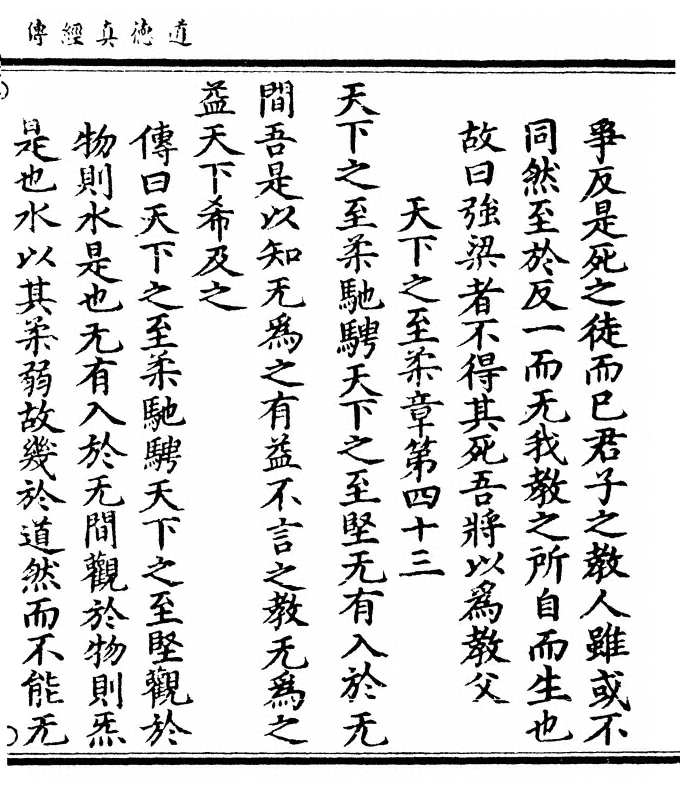 道德真經傳
爭反是死之徒而已君子之教人雖或不
同然至於反一而无我教之所自而生也
故曰強梁者不得其死吾將以爲教父
天下之至柔章第四十三
天下之至柔馳騁天下之至堅无有入於无
間吾是以知无爲之有益不言之教无爲之
益天下希及之
傳曰天下之至柔馳騁天下之至堅觀於
物則水是也无有入於无間觀於物則炁
是也水以其柔弱故幾於道然而不能无